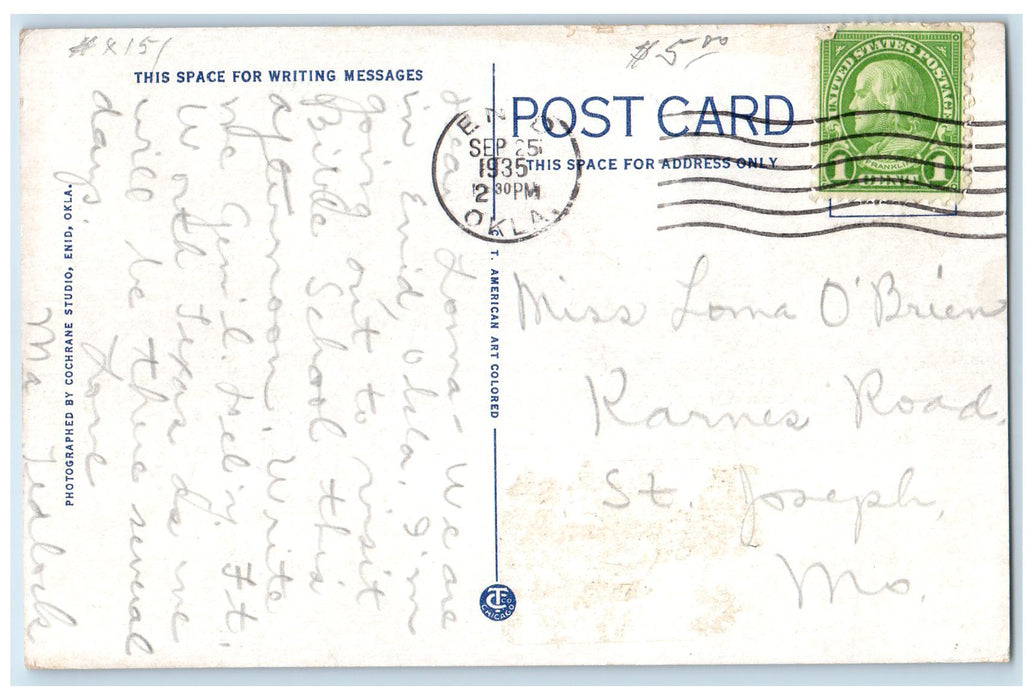 #8151
$5.00
THIS SPACE FOR WRITING MESSAGES
POST CARD
THIS SPACE FOR ADDRESS ONLY
ENID
SEP 25
1935
2 30 PM
OKLA.
UNITED STATES POSTAGE
FRANKLIN
1 CENT 1
Dear Loma - We are
in Enid, Okla. I'm
going out to visit
Bible School this
afternoon. Write
me Gen'l. Del'y. Ft.
Worth Texas as we
will be there several
days.
Love
Ma Tedlock
Miss Loma O'Brien
Karnes Road,
St. Joseph,
Mo.
PHOTOGRAPHED BY COCHRANE STUDIO, ENID, OKLA.
C. T. AMERICAN ART COLORED
CHICAGO